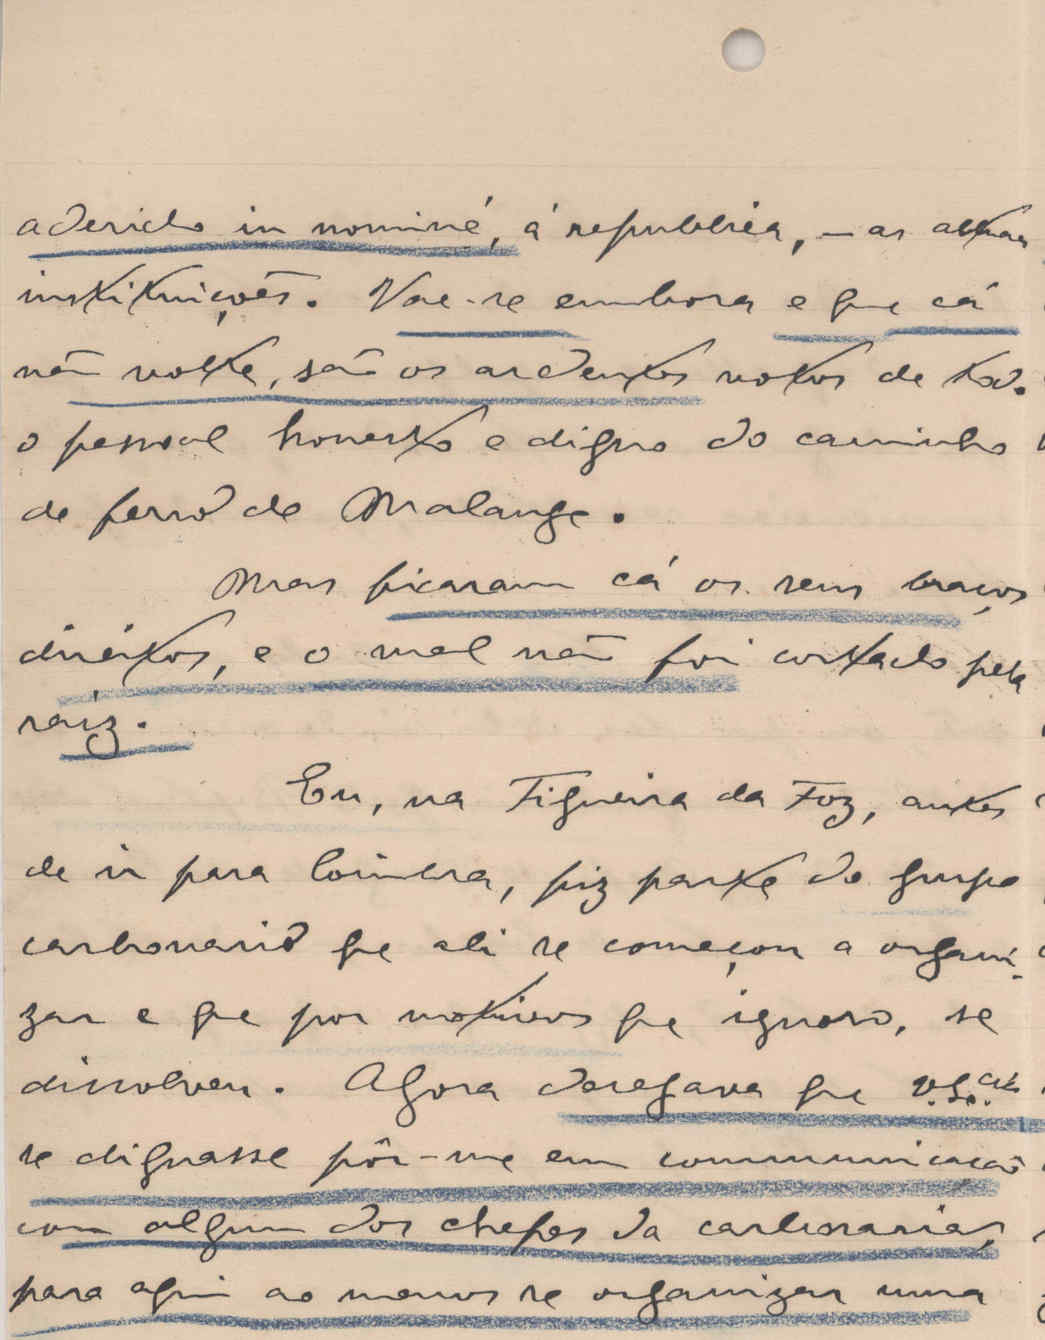 aderido in nominé, á republica, – as altas
instituições. Vae-se embora e que cá
não volte, são os ardentes votos de todo
o pessoal honesto e digno do caminho
de ferro de Malange.
Mas ficaram cá os seus braços
direitos, e o mal não foi cortado pela
raiz.
Eu, na Figueira da Foz, antes
de ir para Coimbra, fiz parte do grupo
carbonario que ali se começou a organi-
zar e que por motivos que ignoro, se
dissolveu. Agora desejava que
se dignasse pôr-me em communicação
com algum dos chefes da carbonaria,
para aqui ao menos se organizar uma